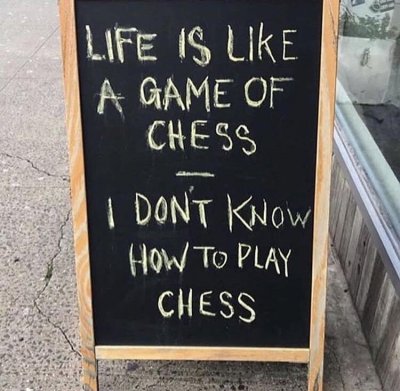 LIFE IS LIKE
A GAME OF
CHESS
—
I DON'T KNOW
HOW TO PLAY
CHESS